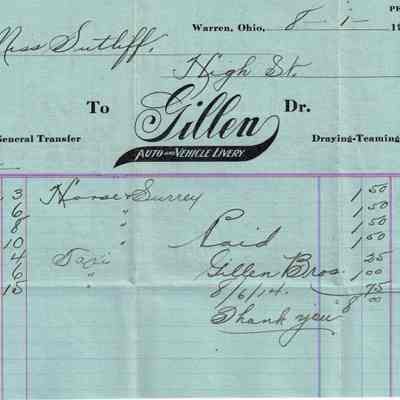 PE
Warren, Ohio, 8-1- 19
Miss Sutliff,
High St.
To Gillen Dr.
AUTO AND VEHICLE LIVERY
General Transfer Draying-Teaming
3 Horse & Surrey 1 50
6 " 1 50
8 " Paid 1 50
10 1 50
4 Taxi Gillen Bros. 25
6 " 1 00
15 8/6/14. 75
Thank you 8 00